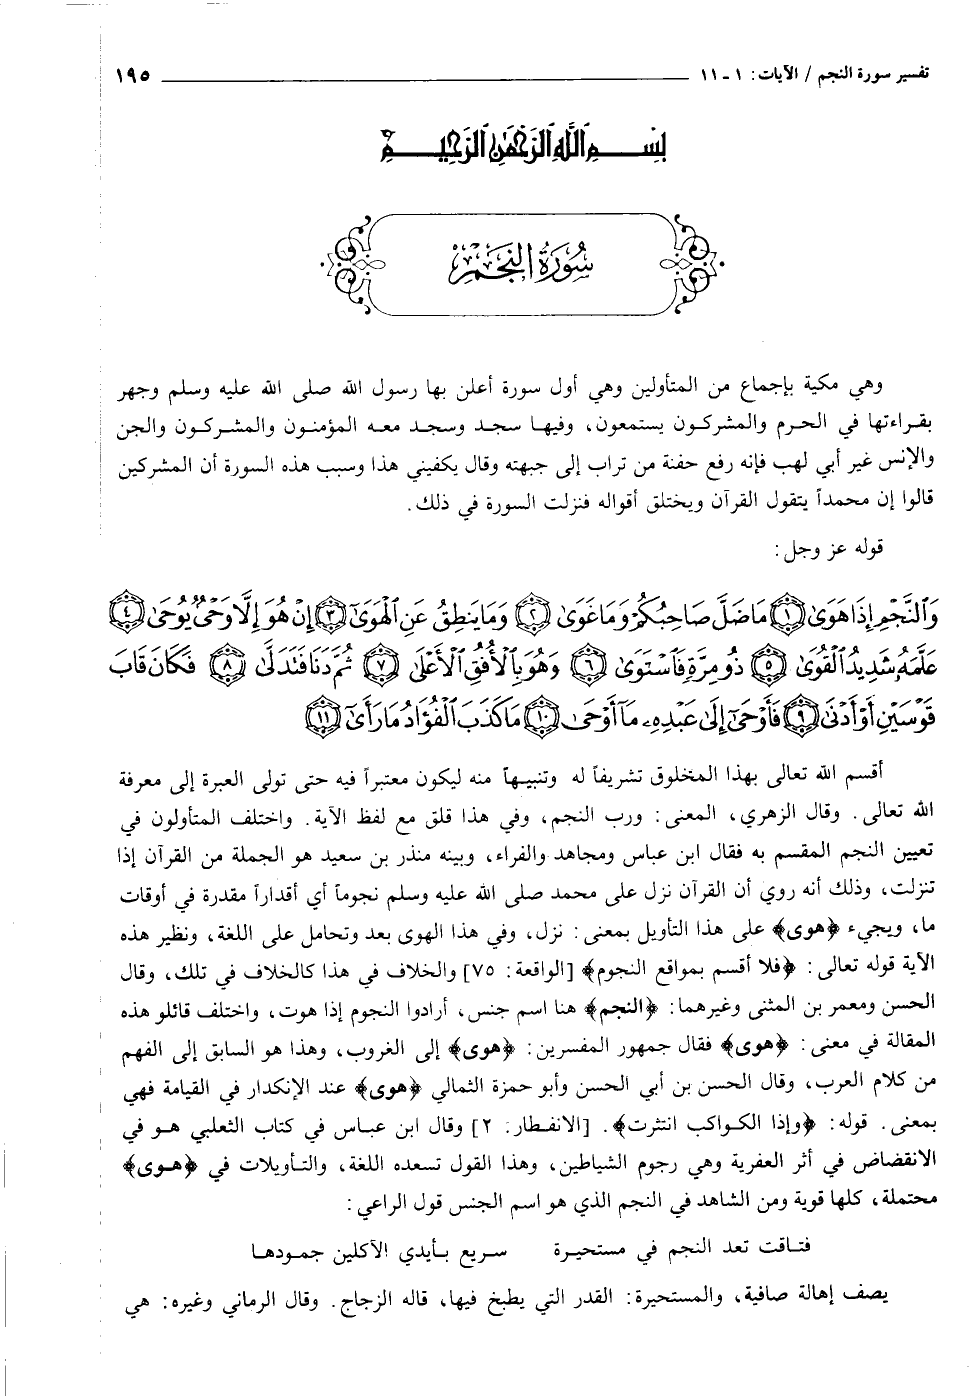 تفسير سورة النجم / الآيات: ١ ـ ١١ ١٩٥
بِسْمِ اللَّهِ الرَّحْمَٰنِ الرَّحِيمِ
سُورَةُ النَّجْمِ
وهي مكية بإجماع من المتأولين وهي أول سورة أعلن بها رسول الله صلى الله عليه وسلم وجهر
بقراءتها في الحرم والمشركون يستمعون، وفيها سجد وسجد معه المؤمنون والمشركون والجن
والإنس غير أبي لهب فإنه رفع حفنة من تراب إلى جبهته وقال يكفيني هذا وسبب هذه السورة أن المشركين
قالوا إن محمداً يتقول القرآن ويختلق أقواله فنزلت السورة في ذلك.
قوله عز وجل:
وَٱلنَّجْمِ إِذَا هَوَىٰ ١ مَا ضَلَّ صَاحِبُكُمْ وَمَا غَوَىٰ ٢ وَمَا يَنطِقُ عَنِ ٱلْهَوَىٰٓ ٣ إِنْ هُوَ إِلَّا وَحْىٌ يُوحَىٰ ٤
عَلَّمَهُۥ شَدِيدُ ٱلْقُوَىٰ ٥ ذُو مِرَّةٍ فَٱسْتَوَىٰ ٦ وَهُوَ بِٱلْأُفُقِ ٱلْأَعْلَىٰ ٧ ثُمَّ دَنَا فَتَدَلَّىٰ ٨ فَكَانَ قَابَ
قَوْسَيْنِ أَوْ أَدْنَىٰ ٩ فَأَوْحَىٰٓ إِلَىٰ عَبْدِهِۦ مَآ أَوْحَىٰ ١٠ مَا كَذَبَ ٱلْفُؤَادُ مَا رَأَىٰٓ ١١
أقسم الله تعالى بهذا المخلوق تشريفاً له وتنبيهاً منه ليكون معتبراً فيه حتى تولى العبرة إلى معرفة
الله تعالى. وقال الزهري، المعنى: ورب النجم، وفي هذا قلق مع لفظ الآية. واختلف المتأولون في
تعيين النجم المقسم به فقال ابن عباس ومجاهد والفراء، وبينه منذر بن سعيد هو الجملة من القرآن إذا
تنزلت، وذلك أنه روي أن القرآن نزل على محمد صلى الله عليه وسلم نجوماً أي أقداراً مقدرة في أوقات
ما، ويجيء ﴿هوى﴾ على هذا التأويل بمعنى: نزل، وفي هذا الهوى بعد وتحامل على اللغة، ونظير هذه
الآية قوله تعالى: ﴿فلا أقسم بمواقع النجوم﴾ [الواقعة: ٧٥] والخلاف في هذا كالخلاف في تلك، وقال
الحسن ومعمر بن المثنى وغيرهما: ﴿النجم﴾ هنا اسم جنس، أرادوا النجوم إذا هوت، واختلف قائلو هذه
المقالة في معنى: ﴿هوى﴾ فقال جمهور المفسرين: ﴿هوى﴾ إلى الغروب، وهذا هو السابق إلى الفهم
من كلام العرب، وقال الحسن بن أبي الحسن وأبو حمزة الثمالي ﴿هوى﴾ عند الإنكدار في القيامة فهي
بمعنى. قوله: ﴿وإذا الكواكب انتثرت﴾. [الانفطار: ٢] وقال ابن عباس في كتاب الثعلبي هو في
الانقضاض في أثر العفرية وهي رجوم الشياطين، وهذا القول تسعده اللغة، والتأويلات في ﴿هوى﴾
محتملة، كلها قوية ومن الشاهد في النجم الذي هو اسم الجنس قول الراعي:
فتاقت تعد النجم في مستحيرة سريع بأيدي الآكلين جمودها
يصف إهالة صافية، والمستحيرة: القدر التي يطبخ فيها، قاله الزجاج. وقال الرماني وغيره: هي